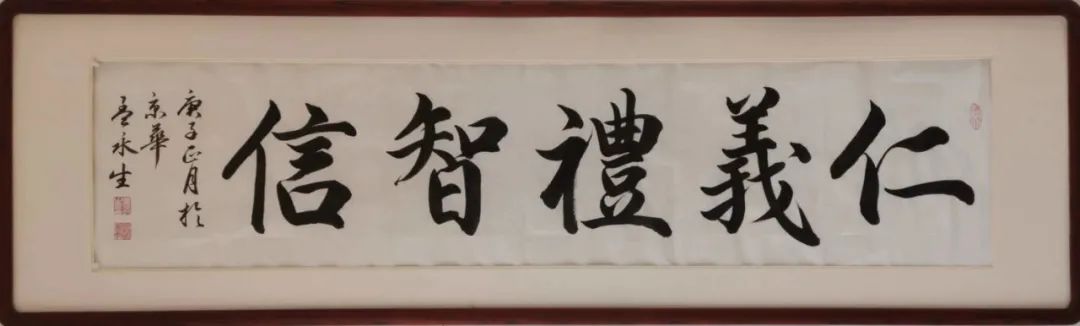 仁義禮智信
庚子正月於
京華
孟永生